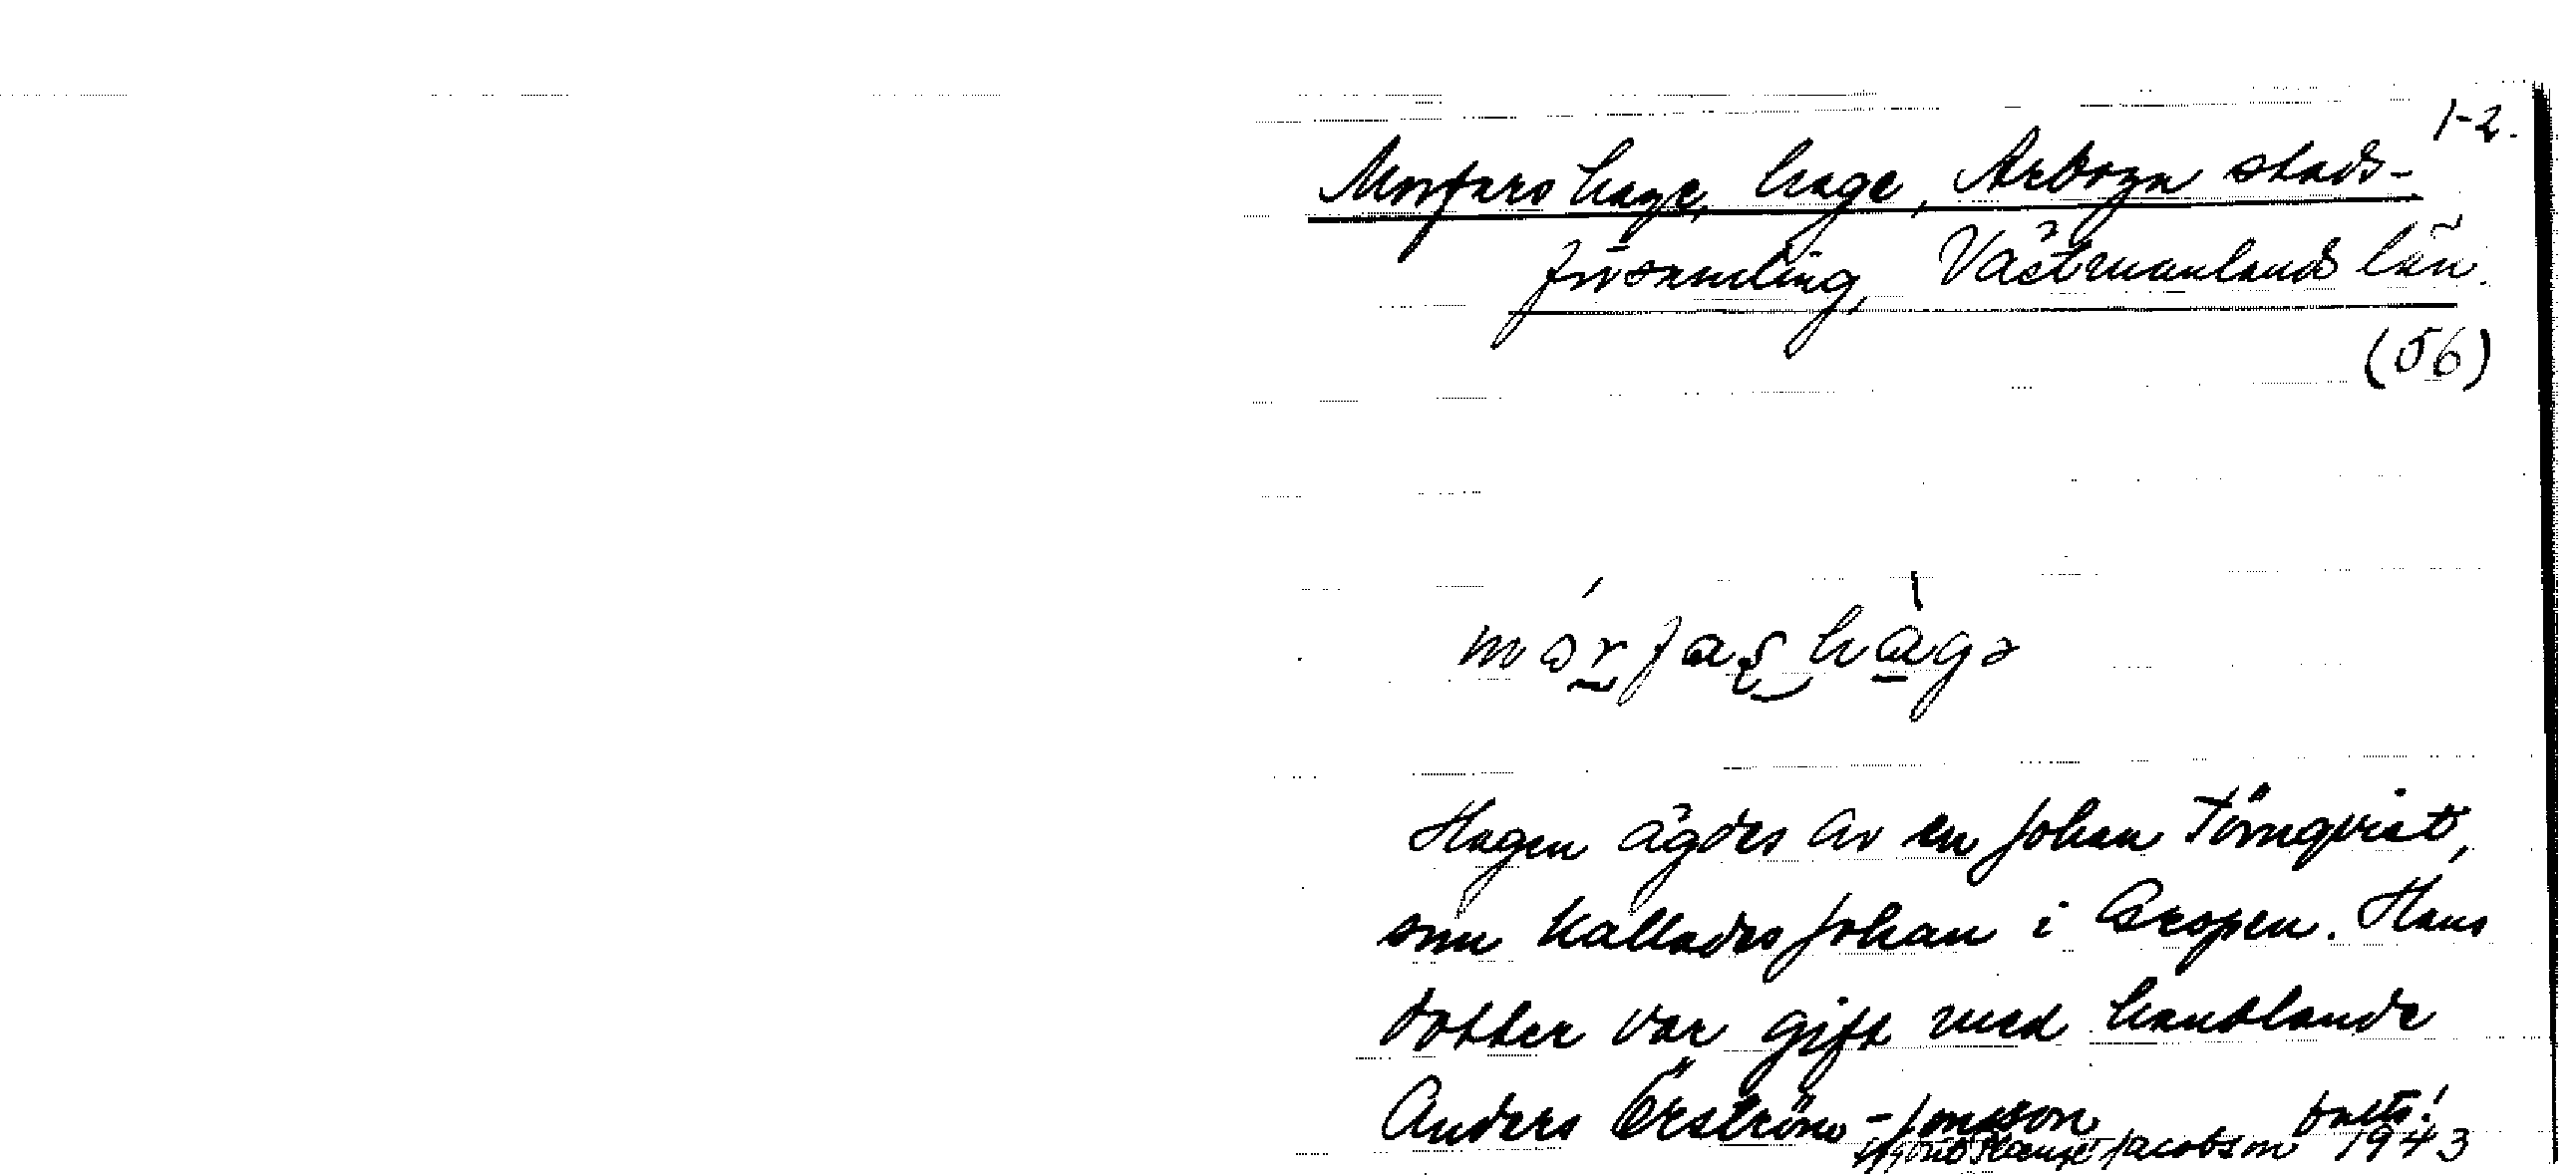 1-2.
Morfars hage, hage, Arboga stads-
församling, Västmanlands län.
(56)
mɔ́rfaʂhàgə
Hagen ägdes av en Johan Törnqvist,
som kallades Johan i Aspen. Hans
dotter var gift med handlande
Anders Örström-Jonsson forts!
Jacobson 1943